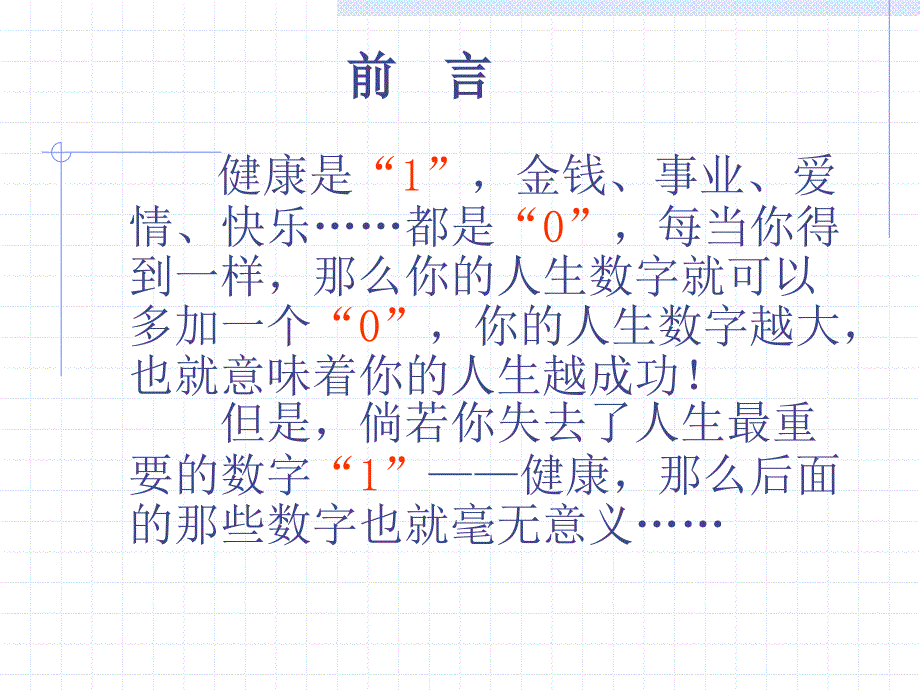 前 言
健康是“1”，金钱、事业、爱
情、快乐……都是“0”，每当你得
到一样，那么你的人生数字就可以
多加一个“0”，你的人生数字越大，
也就意味着你的人生越成功！
但是，倘若你失去了人生最重
要的数字“1”——健康，那么后面
的那些数字也就毫无意义……